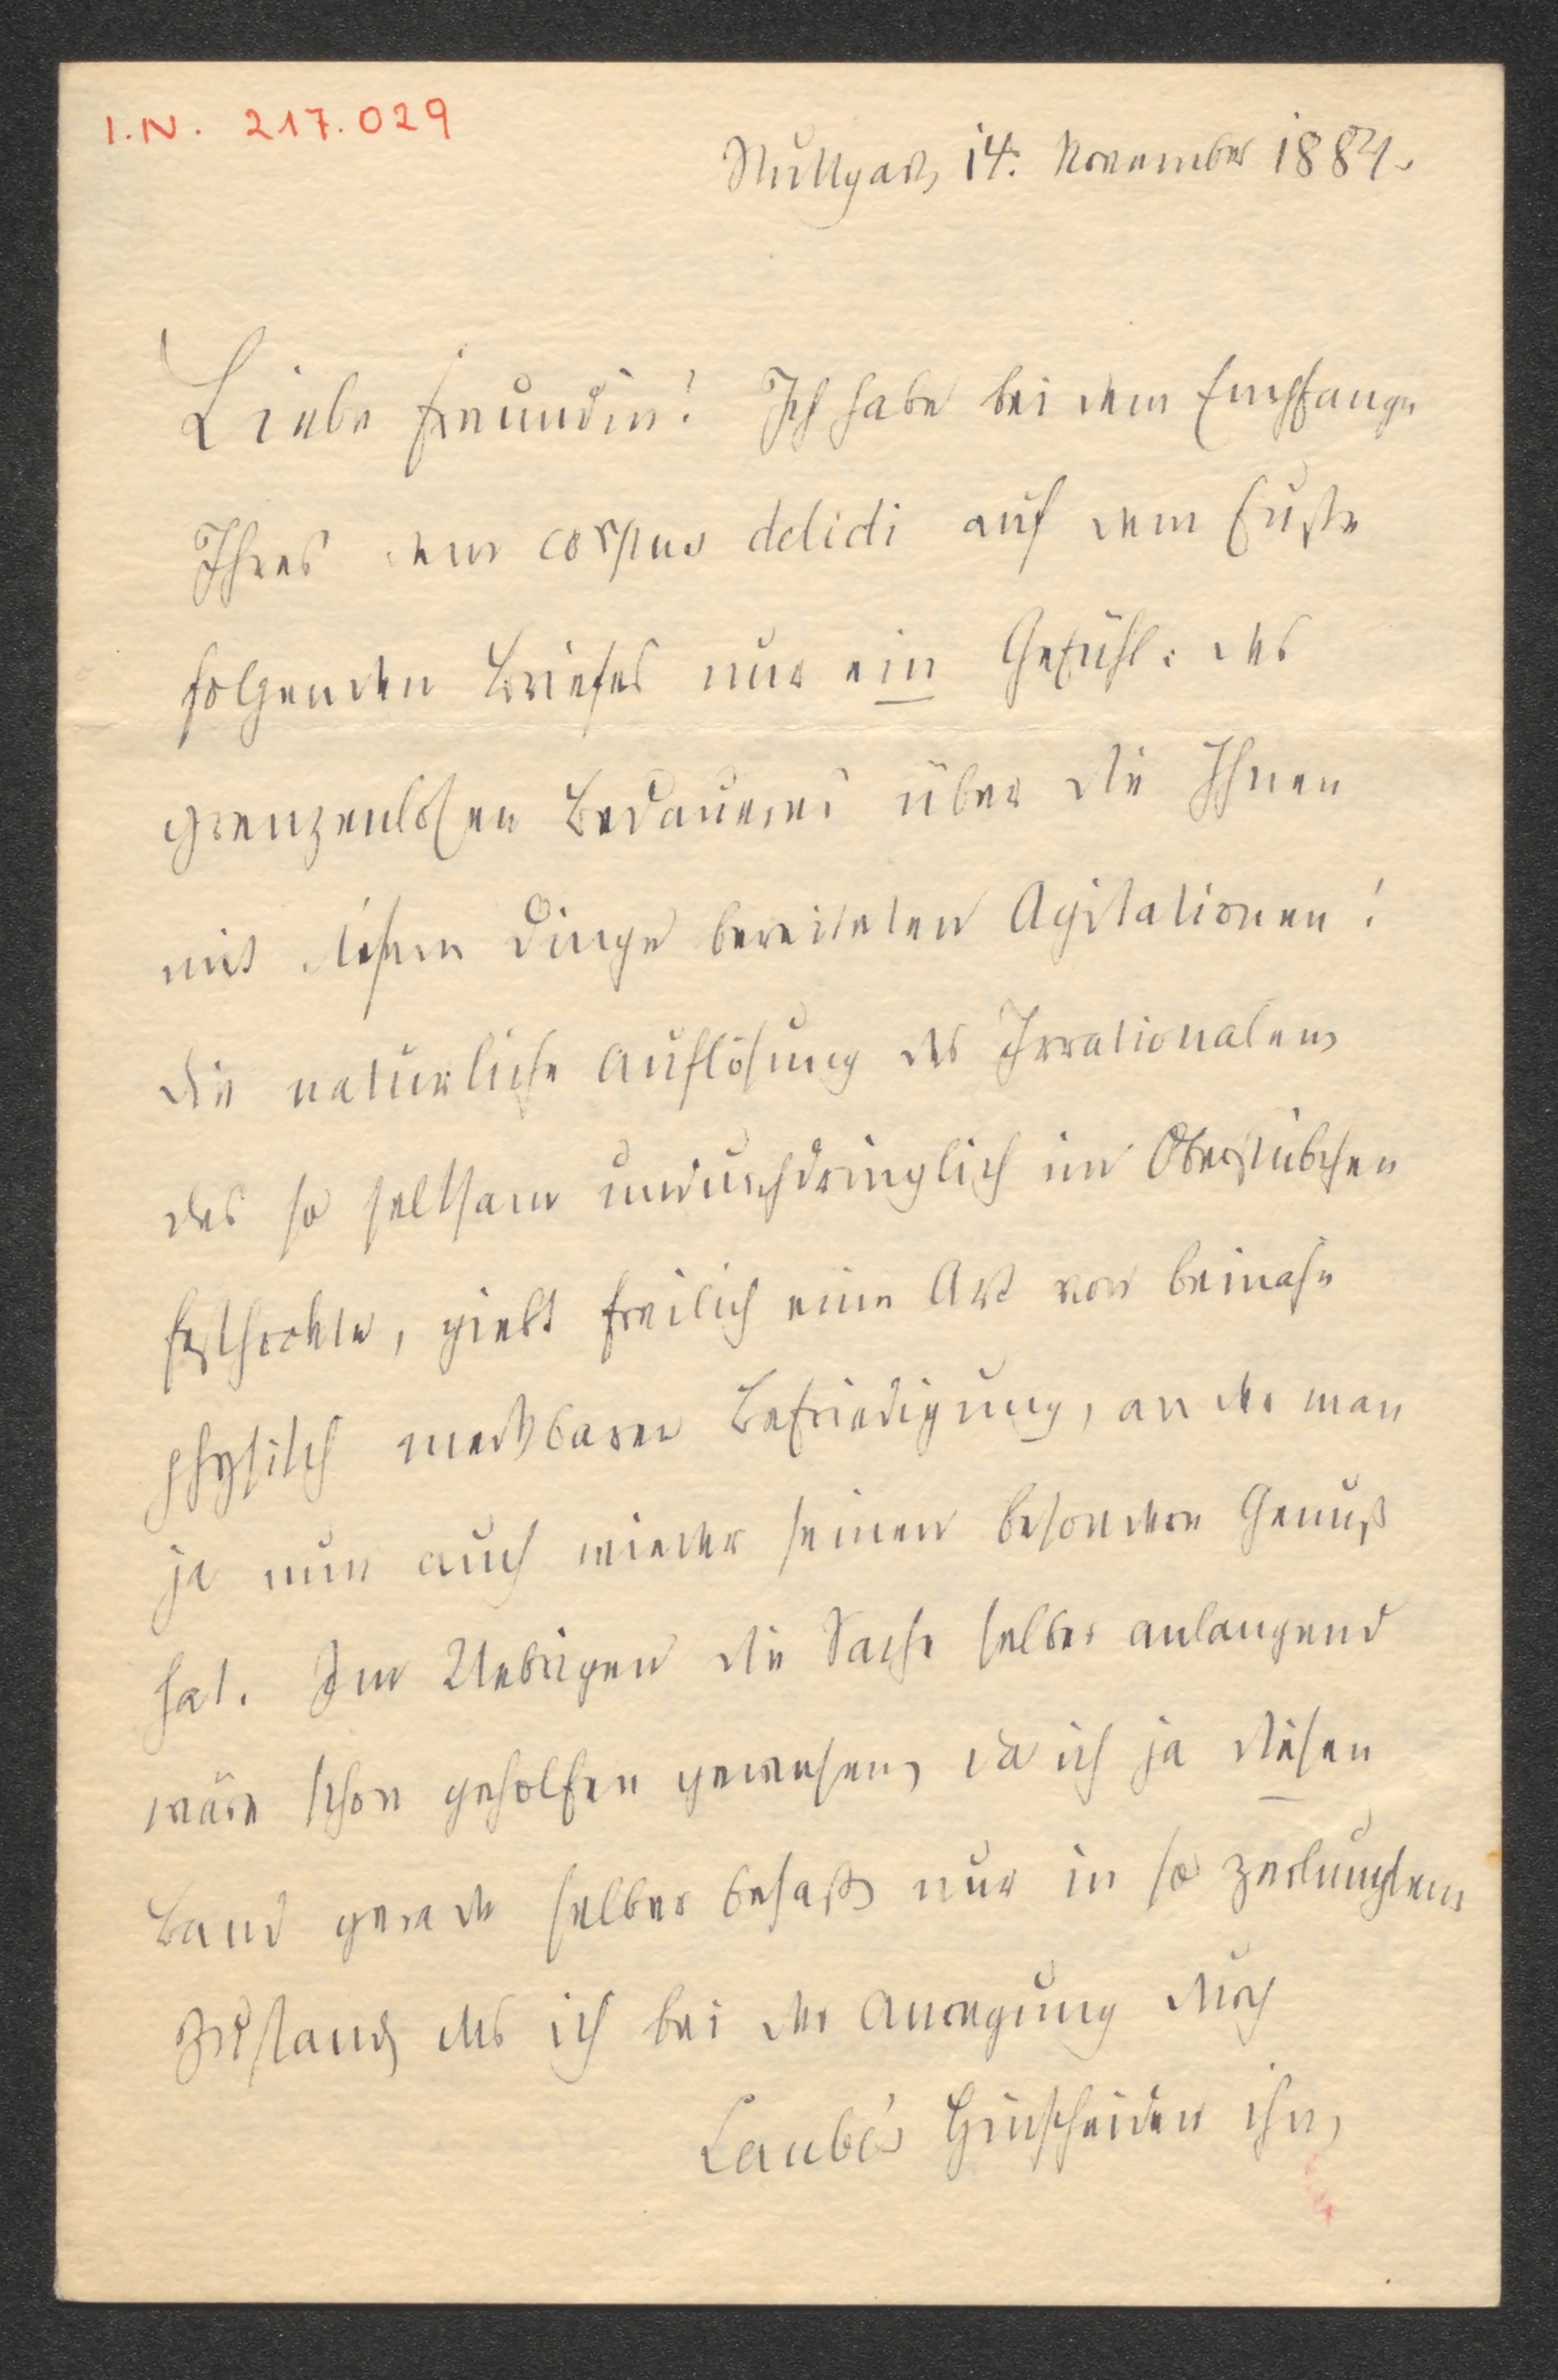 I.N. 217.029
Stuttgart, 14. November 1884.
Liebe Freundin! Ich habe bei dem Empfange
Ihres dem corpus delicti auf dem Fuße
folgenden Briefes nur ein Gefühl: des
grenzenlosen Bedauerns über die Ihnen
mit diesem Dinge bereiteten Agitationen!
Die natürliche Auflösung des Irrationalen,
das so seltsam undurchdringlich im Oberstübchen
festhockte, giebt freilich eine Art von beinahe
physisch merkbarer Befriedigung, an der man
ja nun auch wieder seinen besondern Genuß
hat. Im Uebrigen die Sache selber anlangend
wäre schon geholfen gewesen, da ich ja diesen
Band gerade selber besaß, nur in so
Zustand, das ich bei der Anregung durch
Laube's Hinscheiden ihn,